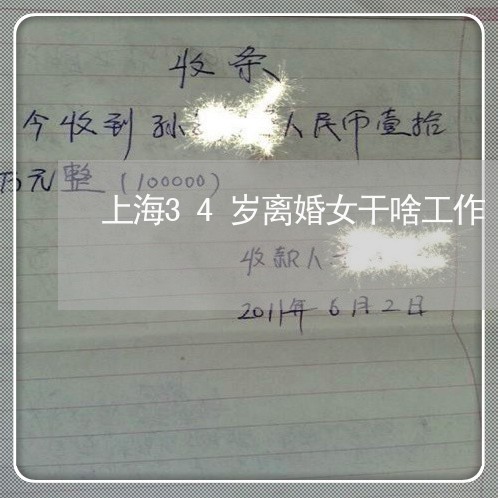 收条
今收到孙 人民币壹拾
万元整（100000）
上海34岁离婚女干啥工作
收款人
2011年6月2日